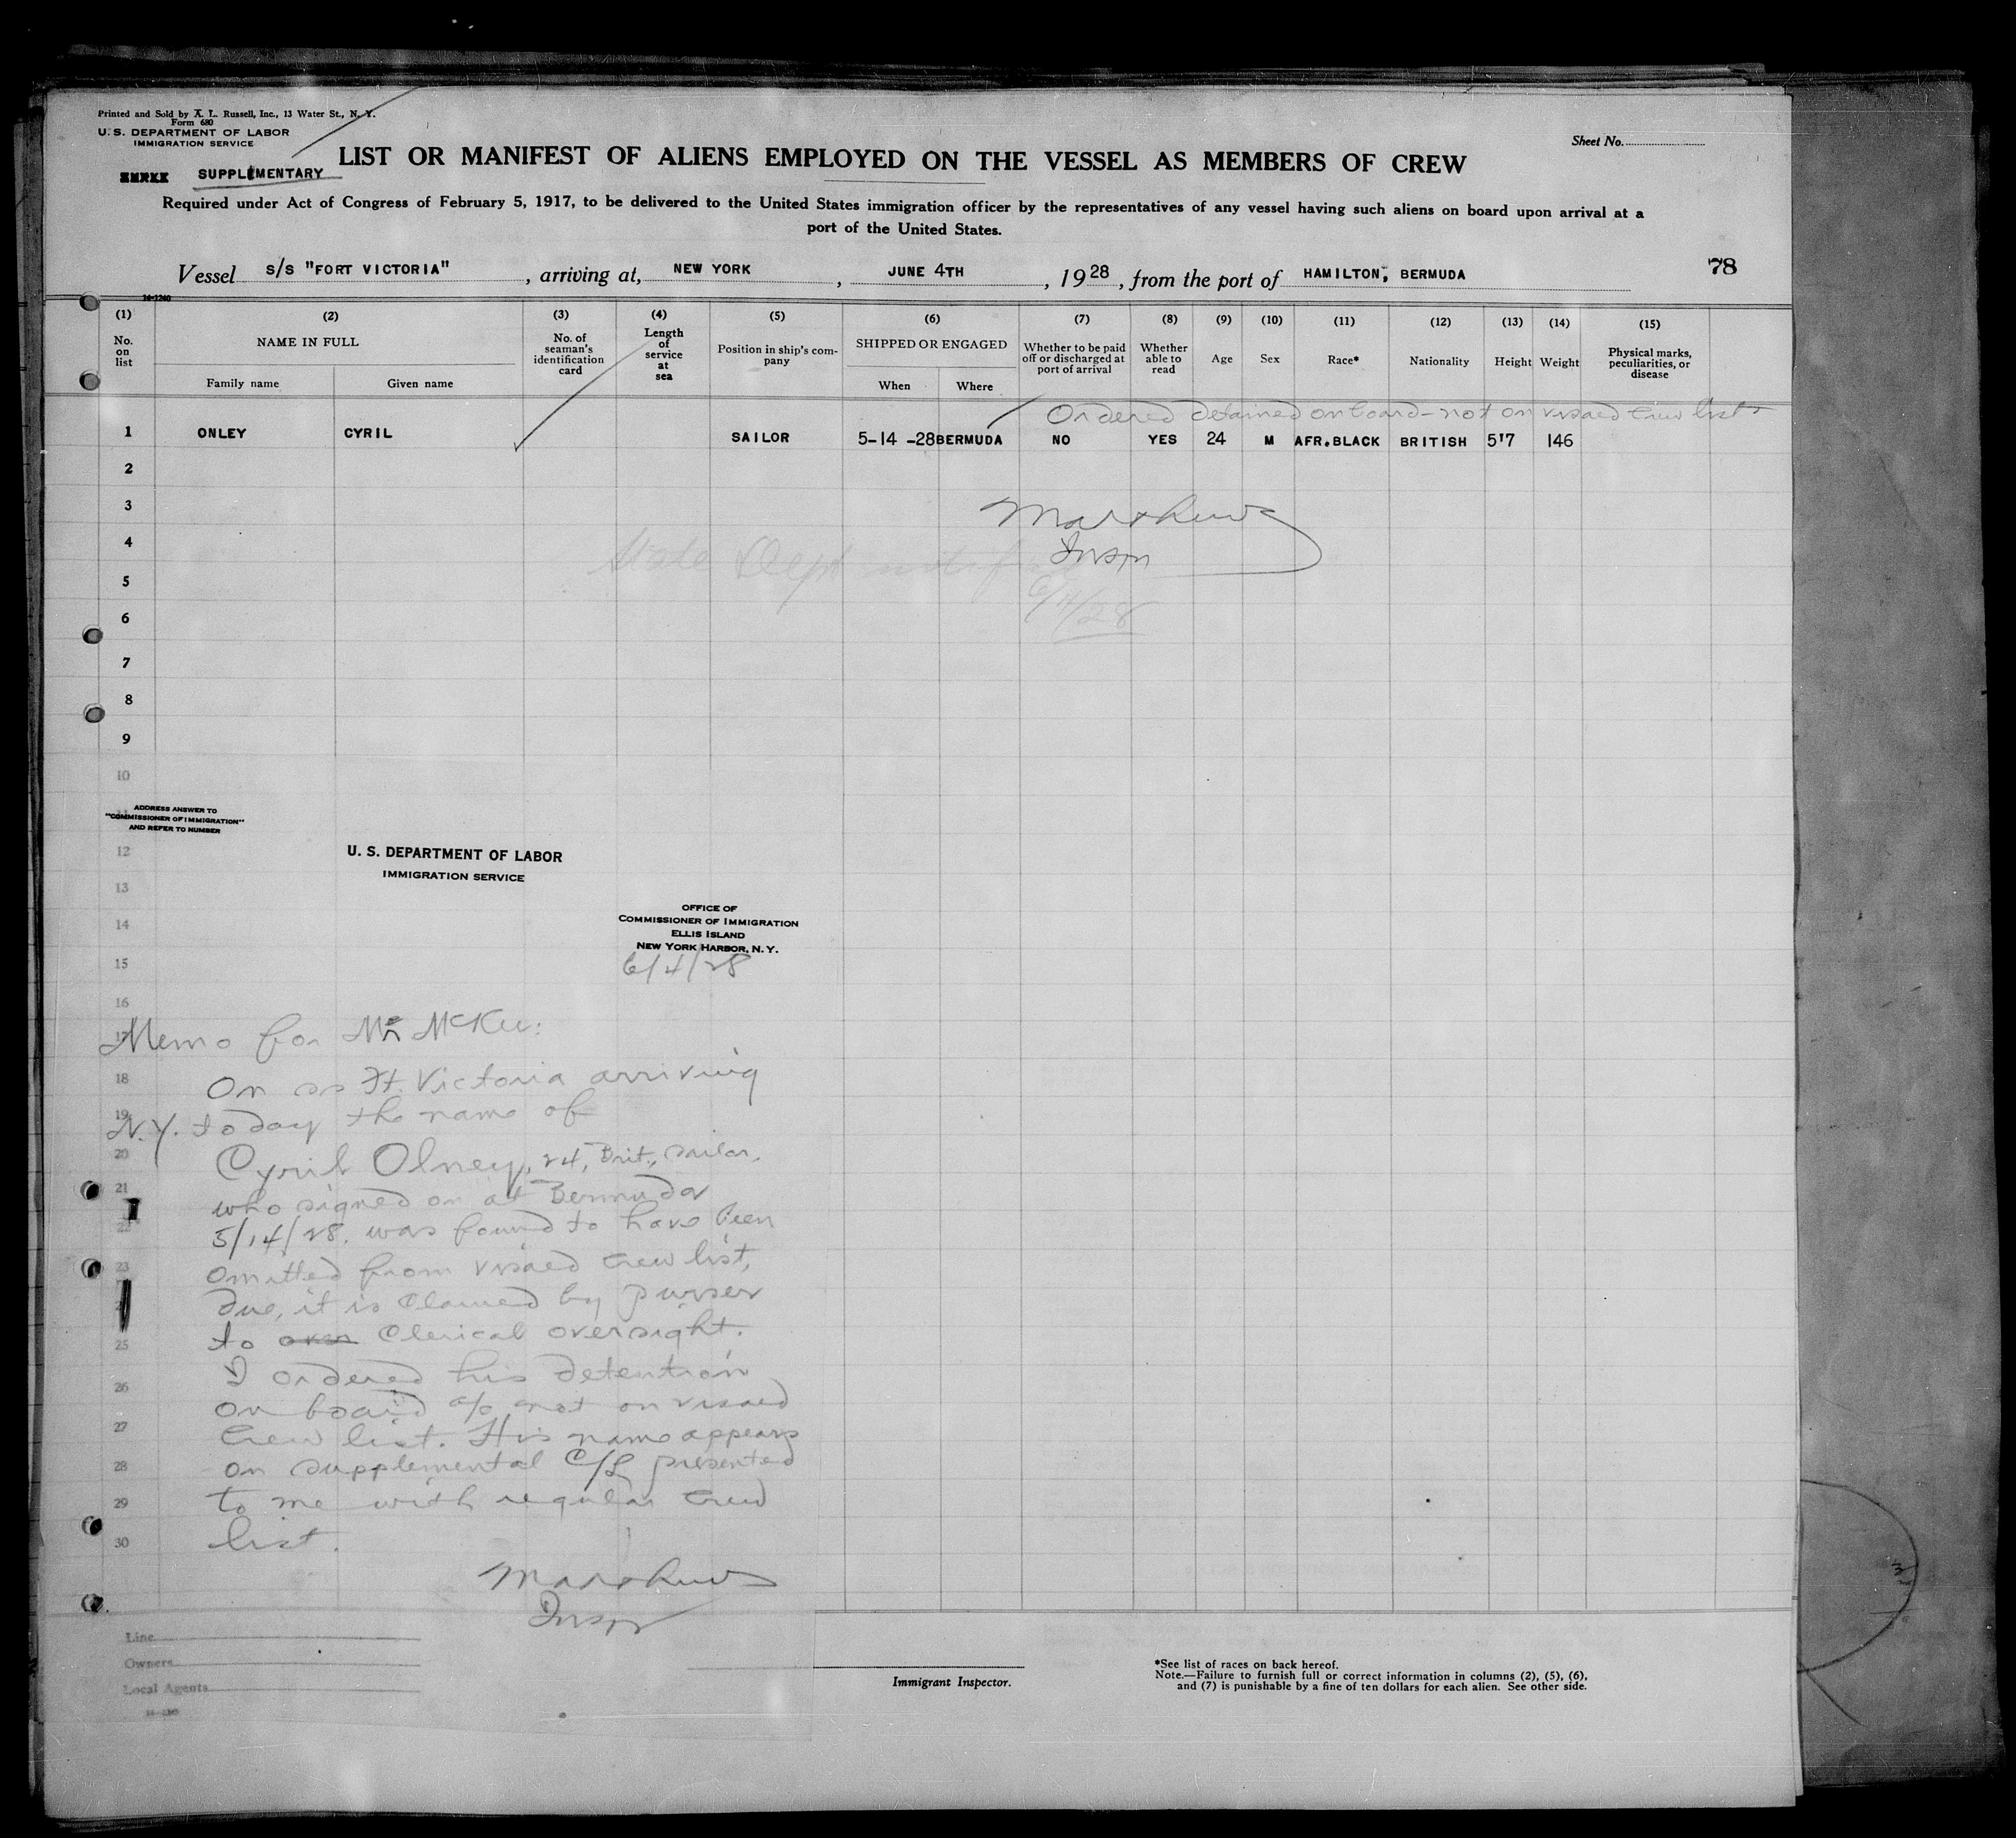 Printed and Sold by A. L. Russell, Inc., 13 Water St., N. Y.
Form 680
U. S. DEPARTMENT OF LABOR
IMMIGRATION SERVICE
Sheet No.
SUPPLEMENTARY LIST OR MANIFEST OF ALIENS EMPLOYED ON THE VESSEL AS MEMBERS OF CREW
Required under Act of Congress of February 5, 1917, to be delivered to the United States immigration officer by the representatives of any vessel having such aliens on board upon arrival at a
port of the United States.
Vessel S/S "FORT VICTORIA", arriving at, NEW YORK, JUNE 4TH, 1928, from the port of HAMILTON, BERMUDA
78
14-1240
(1) (2) (3) (4) (5) (6) (7) (8) (9) (10) (11) (12) (13) (14) (15)
No. on list
NAME IN FULL
Family name Given name
No. of seaman's identification card
Length of service at sea
Position in ship's company
SHIPPED OR ENGAGED
When Where
Whether to be paid off or discharged at port of arrival
Whether able to read
Age
Sex
Race*
Nationality
Height
Weight
Physical marks, peculiarities, or disease
Ordered detained on board - not on visaed crew list
1 ONLEY CYRIL SAILOR 5-14-28 BERMUDA NO YES 24 M AFR.BLACK BRITISH 5'7 146
2
3
Matthews
4
Inspr
State Dept notified
5
6/4/28
6
7
8
9
10
ADDRESS ANSWER TO
"COMMISSIONER OF IMMIGRATION"
AND REFER TO NUMBER
12
U. S. DEPARTMENT OF LABOR
IMMIGRATION SERVICE
13
OFFICE OF
COMMISSIONER OF IMMIGRATION
14
ELLIS ISLAND
NEW YORK HARBOR, N. Y.
15
6/4/28
16
17
Memo for Mr McKee:
18
On ss Ft. Victoria arriving
19
N.Y. today the name of
20
Cyril Olney, 24, Brit., sailor,
21
who signed on at Bermuda
5/14/28. was found to have been
23
omitted from visaed crew list,
due, it is claimed by purser
25
to over clerical oversight.
I ordered his detention
26
on board a/c not on visaed
27
crew list. His name appears
28
on supplemental C/L presented
29
to me with regular crew
30
list.
Matthews
Inspr
Line
Owners
Local Agents
Immigrant Inspector.
*See list of races on back hereof.
Note.—Failure to furnish full or correct information in columns (2), (5), (6),
and (7) is punishable by a fine of ten dollars for each alien. See other side.